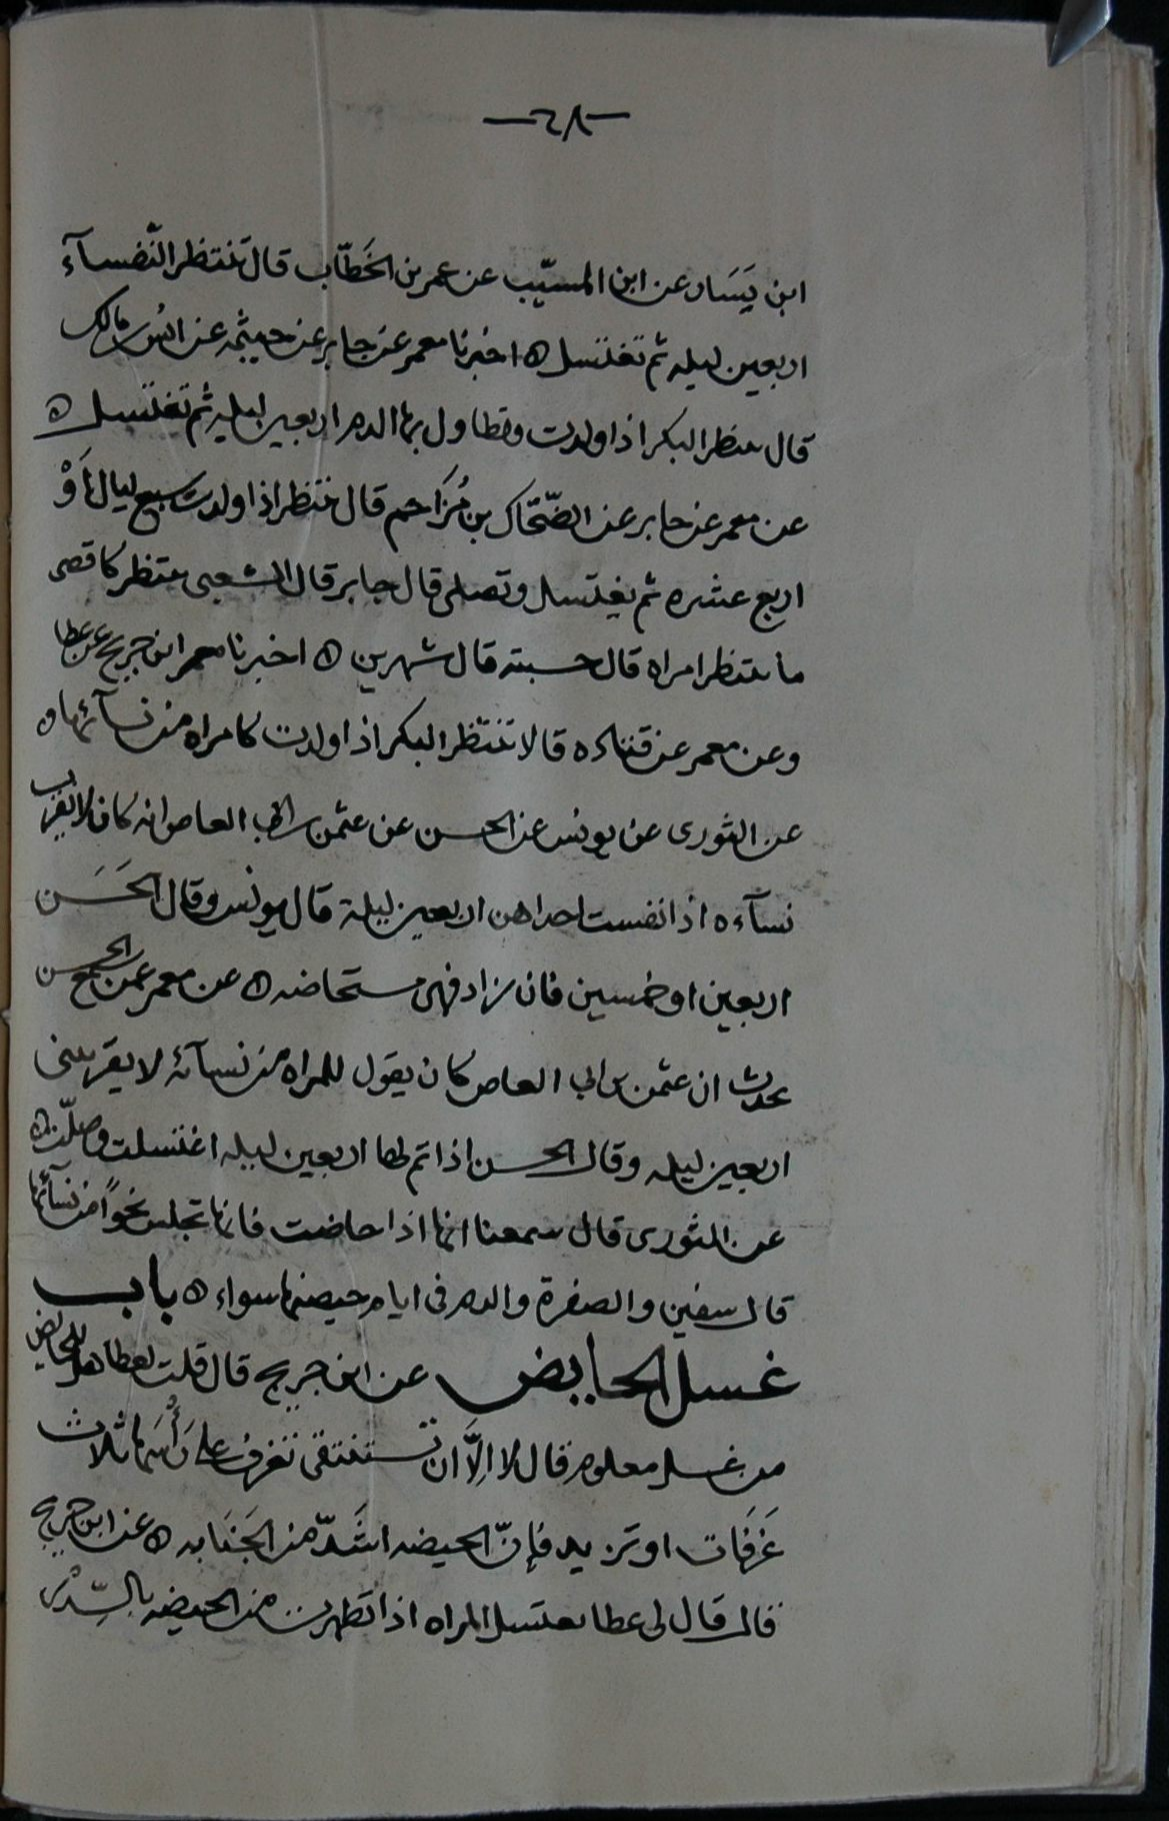 -٦٨-
ابن يَسَار عن ابن المسيّب عن عمر بن الخَطّاب قال تنتظر النّفسآء
اربعين ليله ثم تغتسل ه اخبرنا معمر عن جابر عن خيثمه عن انس بن مالك
قال ىنتظر البكر اذا ولدت وتطاول بها الدم اربعين ليله ثم تغتسل ه
عن معمر عن جابر عن الضّحّاك بن مُزَاحم قال تنتظر اذا ولدت سبع ليال اَوْ
اربع عشره ثم يغتسل وتصلى قال جابر قال الشعبى ىنتظر كاقصى
ما ىنتظر امراه قال حسبته قال شهرين ه اخبرنا معمر ابن جريج عن عطا
وعن معمر عن قتاده قالا تنتظر البكر اذا ولدت كامراه من نسآئها ه
عن الثورى عن يونس عن الحسن عن عثمن بن ابى العاص انه كان لا يقرب
نسآءه اذا نفست احداهن اربعين ليلة قال يونس وقال الحَسَن
اربعين او خمسين فان زاد فهى مستحاضه ه عن معمر عمن سمع الحسن
يحدث ان عثمن بن ابى العاص كان يقول للمراه من نسآئه لا يقربىنى
اربعين ليله وقال الحسن اذا تم لها اربعين ليله اغتسلت وصلّت ه
عن الثورى قال سمعنا انها اذا حاضت فانها تجلس نحوًا من نسآئها
قال سفين والصفرة والدم فى ايام حيضها سواء ه باب
غسل الحايض عن ابن جريج قال قلت لعطا هل للحايض
من غسل معلوم قال لا اِلَّا ان تستنقى تغرف على رَأْسَها ثلاث
غَرَفَات او تزيد فإنّ الحيضه اشَدّ من الجَنَابه ه عن ابن جريج
قال قال لى عطا ىغتسل المراه اذا تطهرت من الحيضه بالسِّدْر